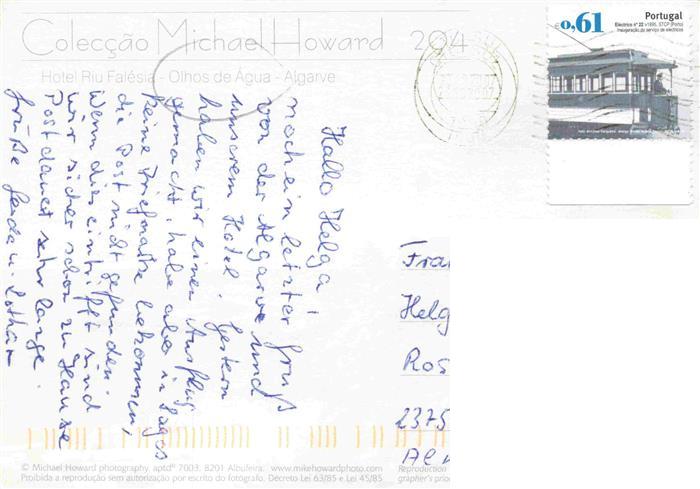 Colecção Michael Howard 204
Hotel Riu Falésia - Olhos de Água - Algarve
€0,61
Portugal
Eléctrico nº 22 v1895, STCP (Porto)
Inauguração do serviço de eléctricos
Hallo Helga!
noch ein letzter Gruß
von der Algarve und
unserem Hotel. Gestern
haben wir einen Ausflug
gemacht, habe aber in Lagos
keine Briefmarke bekommen,
die Post nicht gefunden.
Wenn dies eintrifft sind
wir sicher schon zu Hause
Post dauert sehr lange.
Grüße Gerda u. Lothar
Frau
Helg
Ros
2375
© Michael Howard photography, aptdº 7003, 8201 Albufeira. www.mikehowardphoto.com
Proibida a reprodução sem autorização por escrito do fotógrafo. Décreto Lei 63/85 e Lei 45/85
Reproduction
grapher's prior